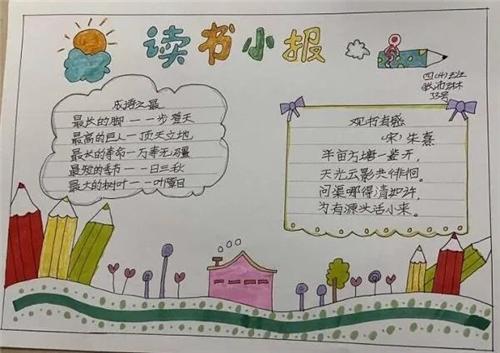 读书小报
四(4)班
13号
成语之最
最长的脚——一步登天
最高的巨人—顶天立地
最长的寿命—万寿无疆
最短的季节——一日三秋
最大的树叶——一叶障目
观书有感
(宋)朱熹
半亩方塘一鉴开,
天光云影共徘徊。
问渠哪得清如许,
为有源头活水来。